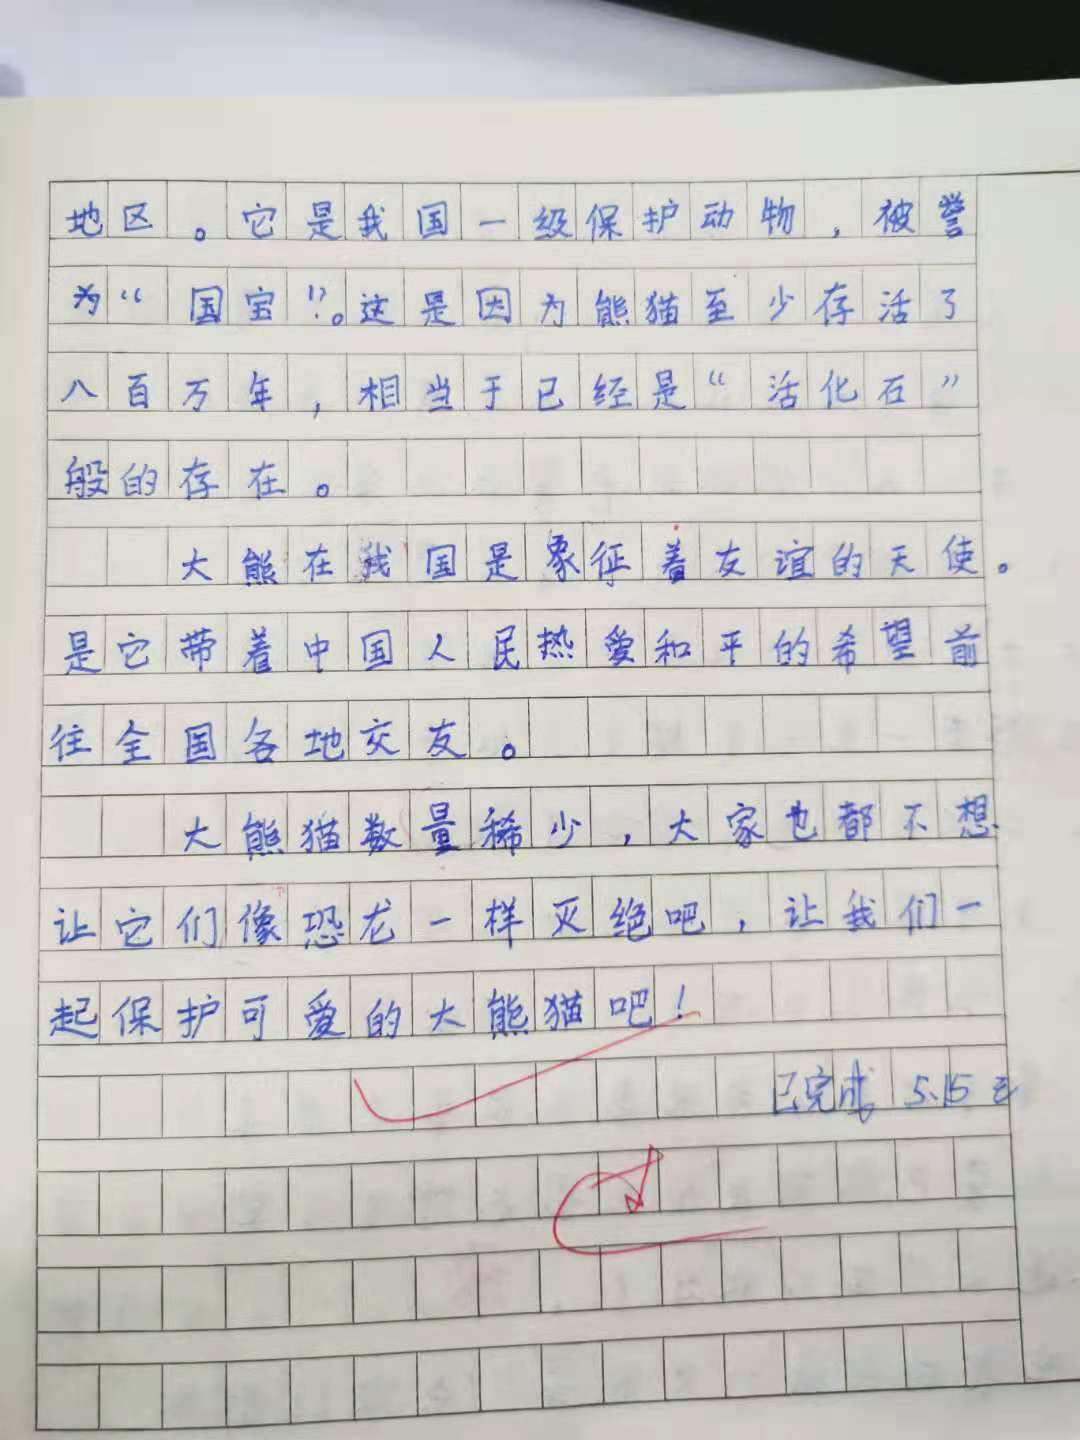 地区。它是我国一级保护动物，被誉
为“国宝!?。这是因为熊猫至少存活了
八百万年，相当于已经是“活化石”
般的存在。
大熊在我国是象征着友谊的天使。
是它带着中国人民热爱和平的希望前
往全国各地交友。
大熊猫数量稀少，大家也都不想
让它们像恐龙一样灭绝吧，让我们一
起保护可爱的大熊猫吧！
已完成 5.15